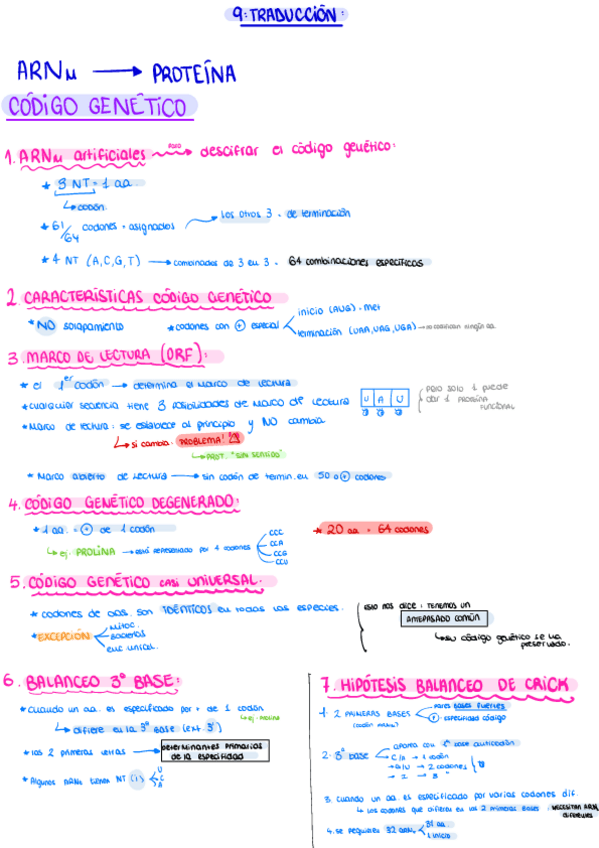 9. TRADUCCIÓN:
ARNm → PROTEÍNA
CÓDIGO GENÉTICO
1. ARNm artificiales → para descifrar el código genético:
* 3 NT = 1 aa.
↳ codón.
* 61/64 codones = asignados → los otros 3 = de terminación
* 4 NT (A, C, G, T) → combinados de 3 en 3 = 64 combinaciones específicas
2. CARACTERÍSTICAS CÓDIGO GENÉTICO
* NO solapamiento
* codones con ⊕ especial
inicio (AUG) = met
terminación (UAA, UAG, UGA) → no codifican ningún aa.
3. MARCO DE LECTURA (ORF):
* el 1er codón → determina el marco de lectura
* cualquier secuencia tiene 3 posibilidades de marco de lectura
U A U
pero solo 1 puede
dar 1 proteína
funcional
* Marco de lectura: se establece al principio y NO cambia
↳ si cambia: PROBLEMA!
↳ PROT. "SIN SENTIDO"
* Marco abierto de lectura → sin codón de termin. en 50 o ⊕ codones
4. CÓDIGO GENÉTICO DEGENERADO:
* 1 aa. = ⊕ de 1 codón
* 20 aa = 64 codones
↳ ej. PROLINA → está representado por 4 codones
CCC
CCA
CCG
CCU
5. CÓDIGO GENÉTICO casi UNIVERSAL.
* codones de aas. son IDÉNTICOS en todas las especies.
* EXCEPCIÓN
mitoc.
bacterias
euc unicel.
esto nos dice: tenemos un
ANTEPASADO COMÚN
↳ su código genético se ha
preservado.
6. BALANCEO 3º BASE:
* Cuando un aa. es especificado por + de 1 codón
↳ ej = prolina
↳ difiere en la 3º base (ext. 3')
* las 2 primeras letras → determinantes primarios
de la especificidad
* Algunos ARNt tienen NT (I)
U
C
A
7. HIPÓTESIS BALANCEO DE CRICK
1. 2 PRIMERAS BASES
(codón ARNm)
pares bases fuertes
⊕ especificidad código
2. 3º base
aparea con 1º base anticodón
C/A → 1 codón
G/U → 2 codones
I → 3 "
3. cuando un aa. es especificado por varios codones dif.
↳ los codones que difieren en las 2 primeras bases NECESITAN ARNt
diferentes
4. se requieren 32 ARNt
31 aa.
1 inicio